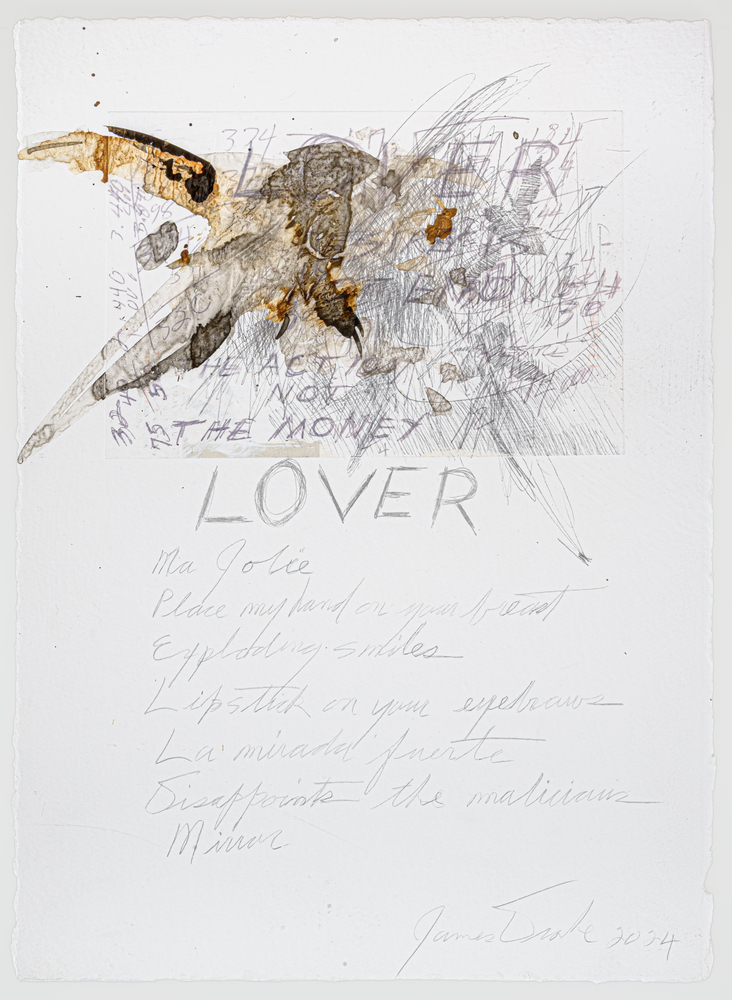 374
LOVER
ENOUGH
THE ACT OF
NOT
THE MONEY
LOVER
Ma Jolie
Place my hand on your breast
Exploding smiles
Lipstick on your eyebrows
La mirada fuerte
Disappoints the malicious
Mirror
James Drake 2024